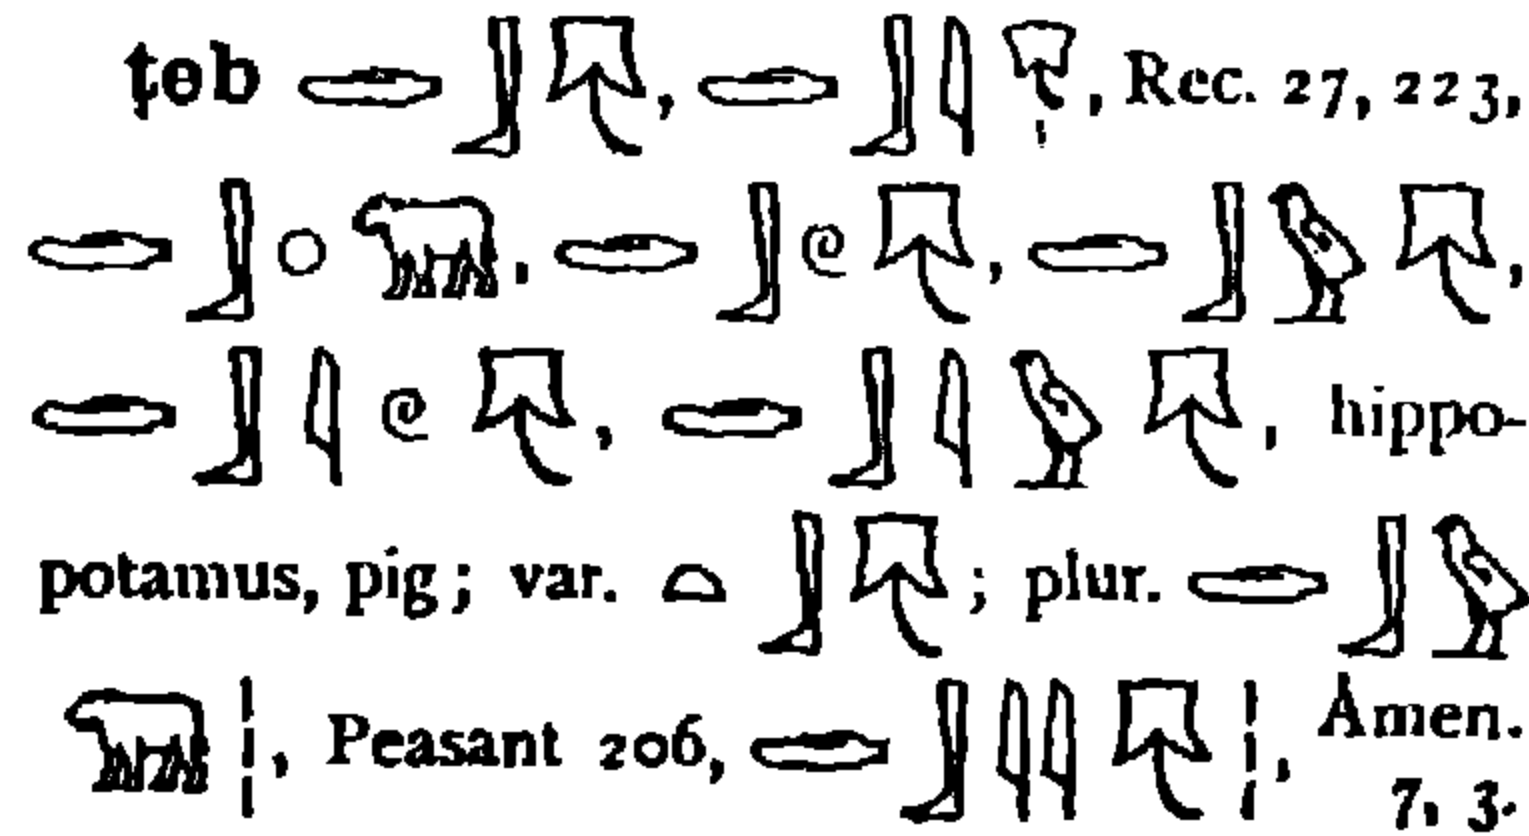 ṭeb 𓂧𓃀𓄛, 𓂧𓃀𓇋𓄛𓏤, Rec. 27, 223,
𓂧𓃀𓈒𓃯, 𓂧𓃀𓏲𓄛, 𓂧𓃀𓅱𓄛,
𓂧𓃀𓇋𓏲𓄛, 𓂧𓃀𓇋𓅱𓄛, hippo-
potamus, pig; var. 𓏏𓃀𓄛; plur. 𓂧𓃀𓅱
𓃯𓏪, Peasant 206, 𓂧𓃀𓇋𓇋𓄛𓏪, Åmen.
7, 3.